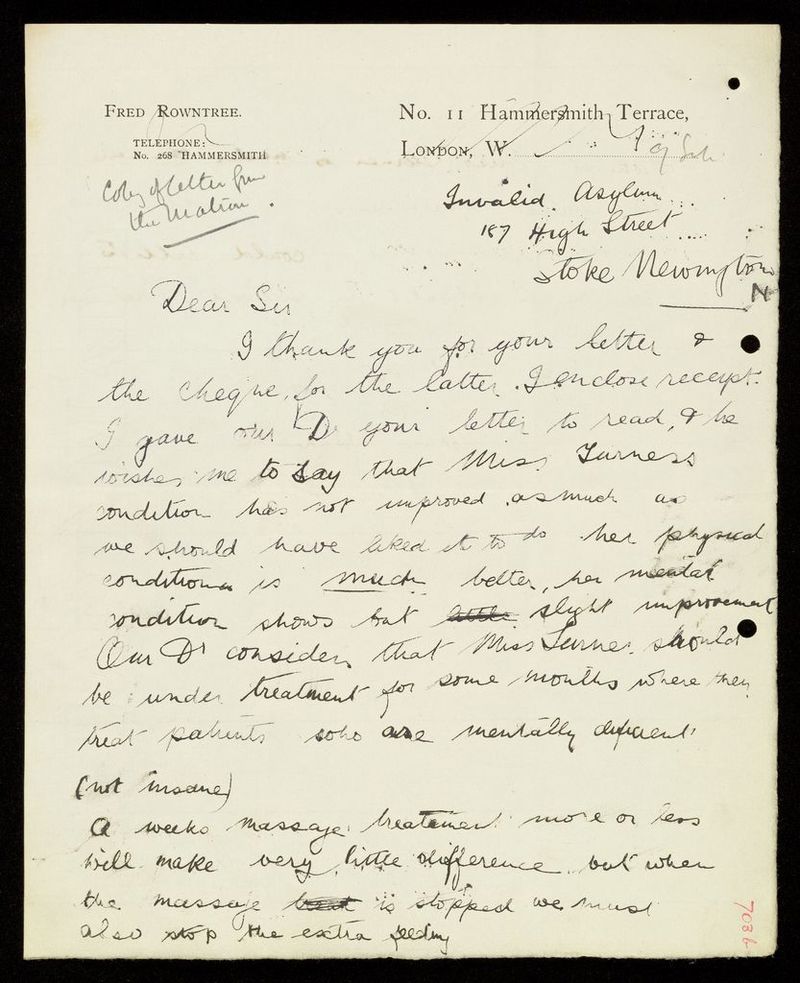 FRED ROWNTREE.
TELEPHONE:
No. 268 HAMMERSMITH
No. 11 Hammersmith Terrace,
LONDON, W.
Copy of letter from
the Matron.
Invalid Asylum
187 High Street
Stoke Newington
N
Dear Sir
I thank you for your letter &
the cheque, for the latter I enclose receipt.
I gave our Dr your letter to read, & he
wishes me to say that Miss Turness
condition has not improved as much as
we should have liked it to do her physical
condition is much better, her mental
condition shows but little slight improvement
Our Dr considers that Miss Turness should
be under treatment for some months where they
treat patients who are mentally deficient
(not insane)
A weeks massage treatment more or less
will make very little difference but when
the massage is stopped we must
also stop the extra feeding
7036